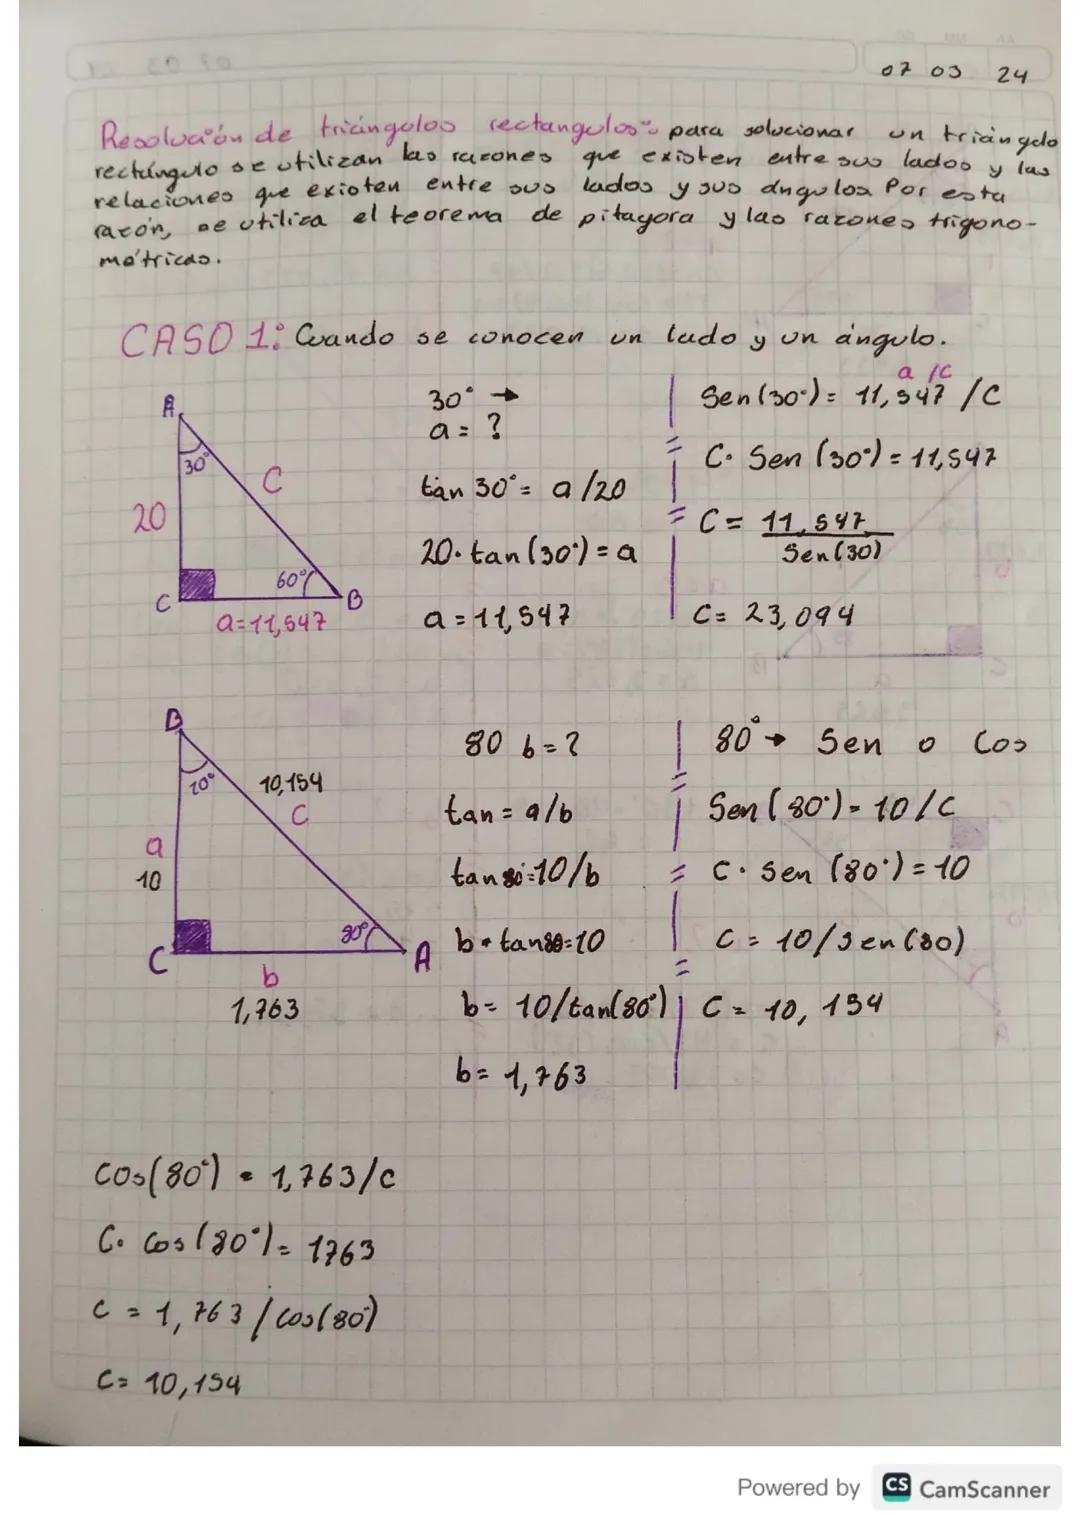 07 03 24
Resolución de triángulos rectangulos: para solucionar un triángulo
rectángulo se utilizan las razones que existen entre sus lados y las
relaciones que existen entre sus lados y sus ángulos Por esta
razón, se utiliza el teorema de pitagora y las razones trigono-
métricas.
CASO 1: Cuando se conocen un lado y un ángulo.
A
30°
C
20
60°
C
B
a=11,547
30° →
a = ?
tan 30° = a /20
20· tan (30°) = a
a = 11,547
a /C
Sen (30°) = 11,547 /C
C· Sen (30°) = 11,547
C = 11,547
Sen (30)
C = 23,094
B
10°
10,154
C
a
10
80°
C
A
b
1,763
80 b = ?
tan = a/b
tan 80° = 10/b
b • tan 80 = 10
b = 10/tan(80°)
b = 1,763
80° → Sen o Cos
Sen (80°) = 10/C
C · Sen (80°) = 10
C = 10/sen(80)
C = 10,154
Cos(80°) = 1,763/c
C· Cos (80°) = 1763
C = 1,763 / Cos(80°)
C = 10,154
Powered by CS CamScanner